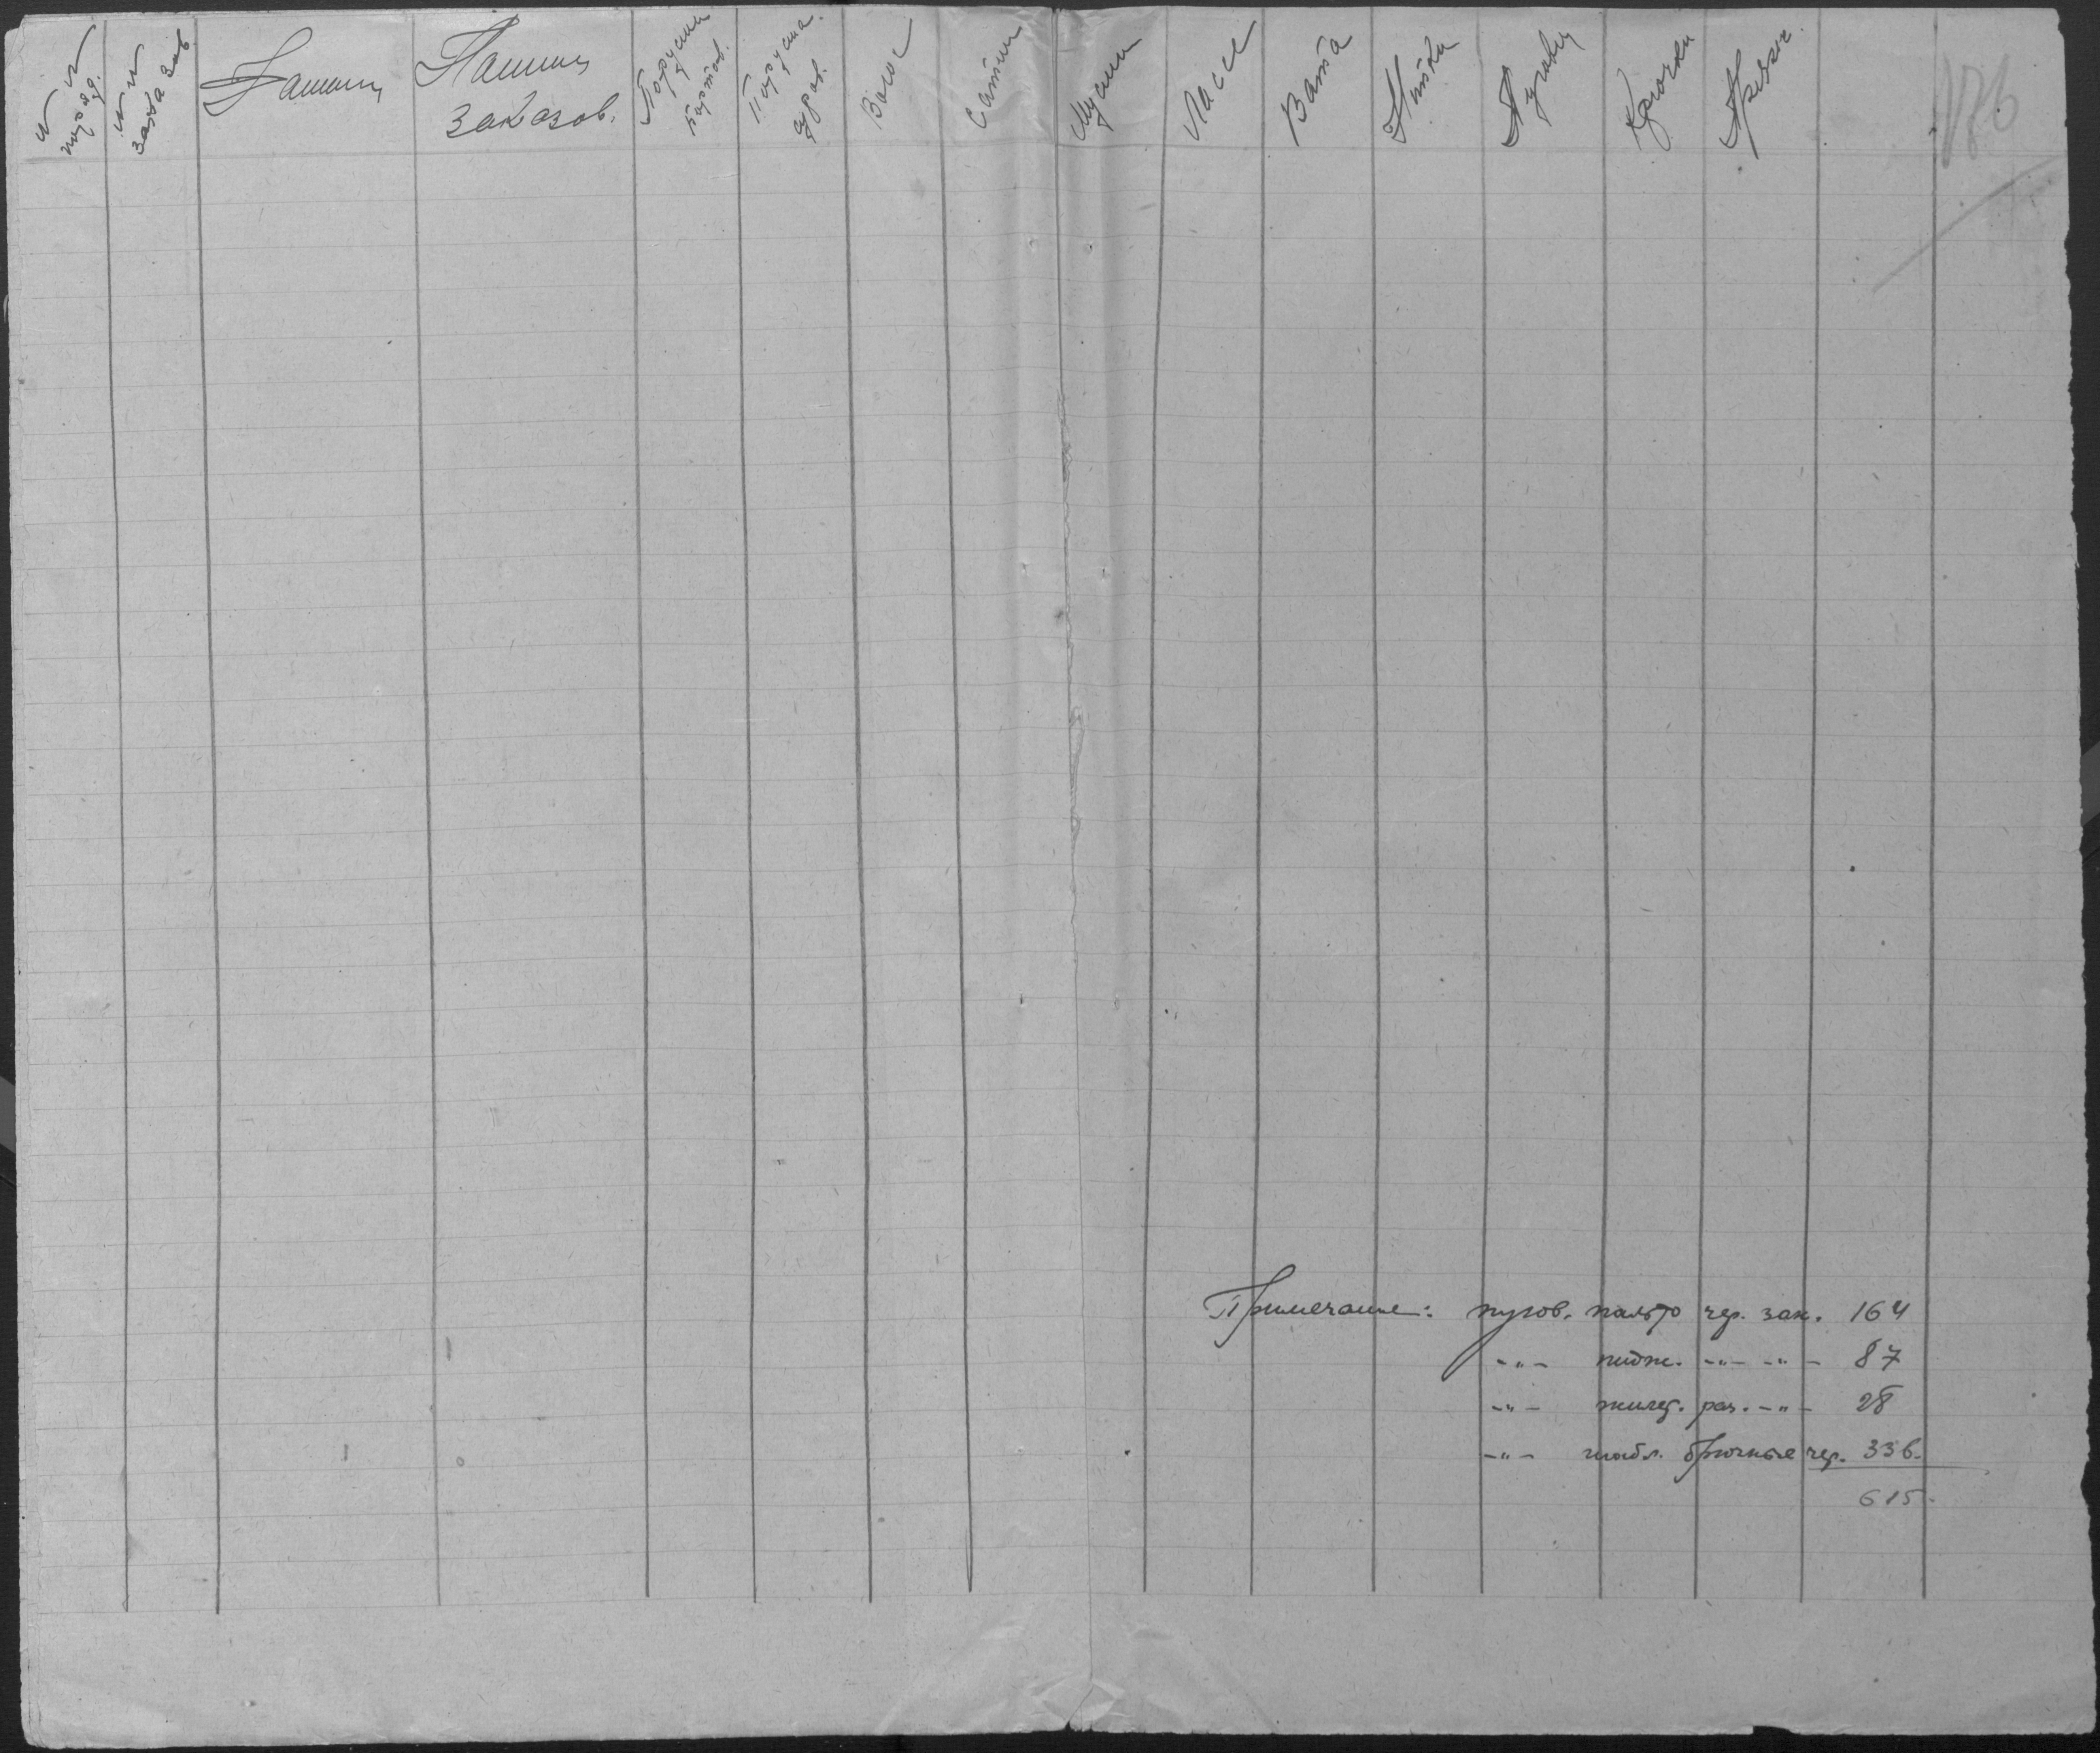 № № поряд.
№ № заказов
Фамилия
Наимен. заказов.
Парусина бортов.
Парусина суров.
Волос
Сатин
Муслин
Ластик
Вата
Нитки
Пуговиц
Крючки
Пряжк.
176
Примечание: пугов. пальто чер. зак. 164
-"- пидж. -"- -"- 87
-"- жилет. раз. -"- 28
-"- шабл. брючные чер. 336.
615.